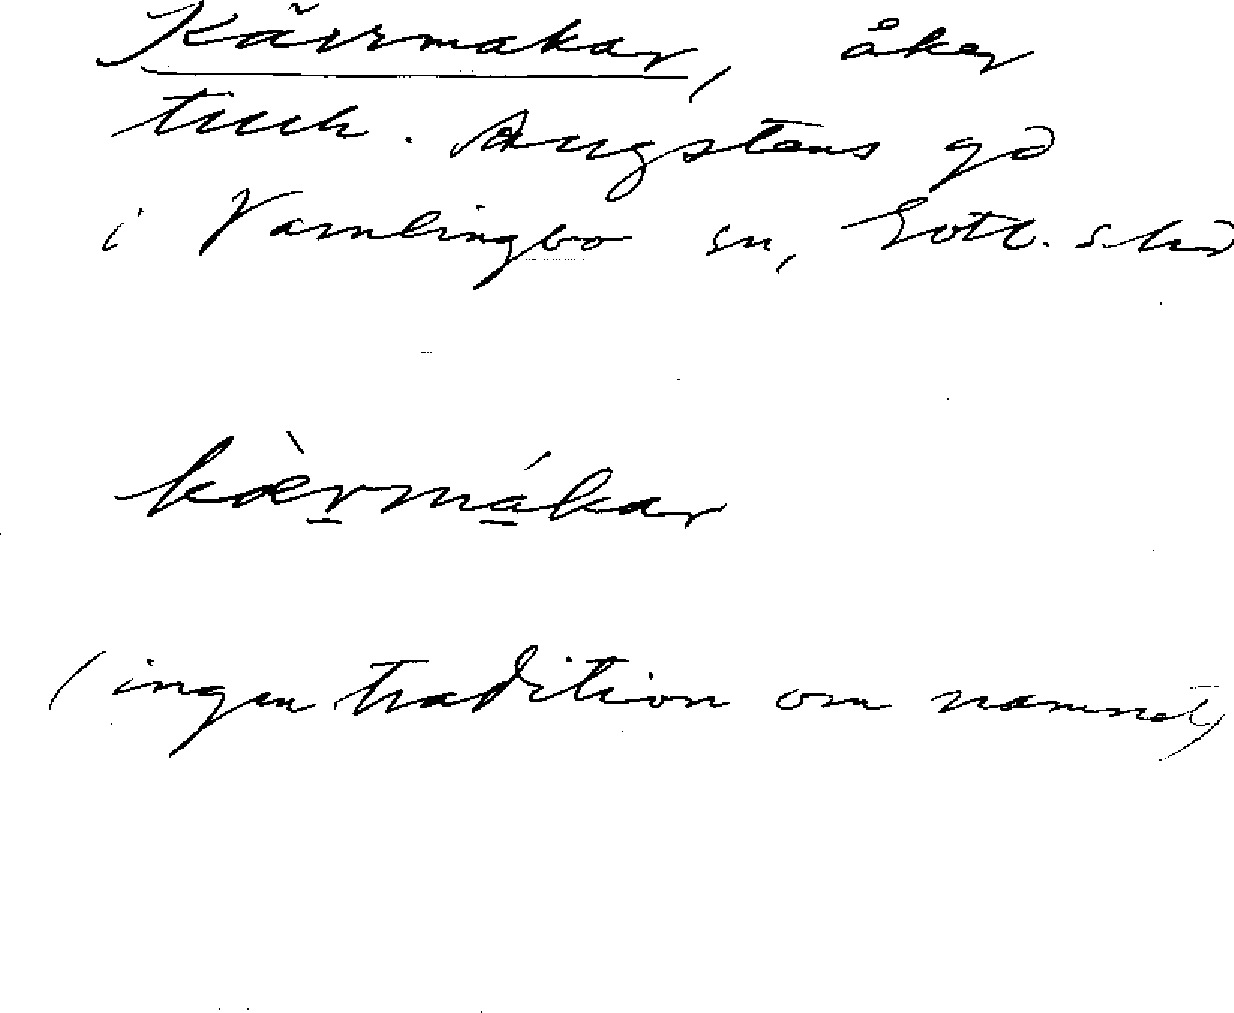 Kärrmakar, åker
tillh. Augstens gd
i Vamlingbo sn, Gotl. s hd
kæ̀rmákar
(ingen tradition om namnet)